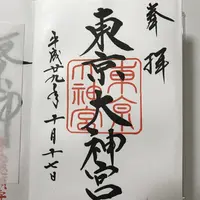 奉拝
東京大神宮
東京大神宮
平成廿九年十月十七日